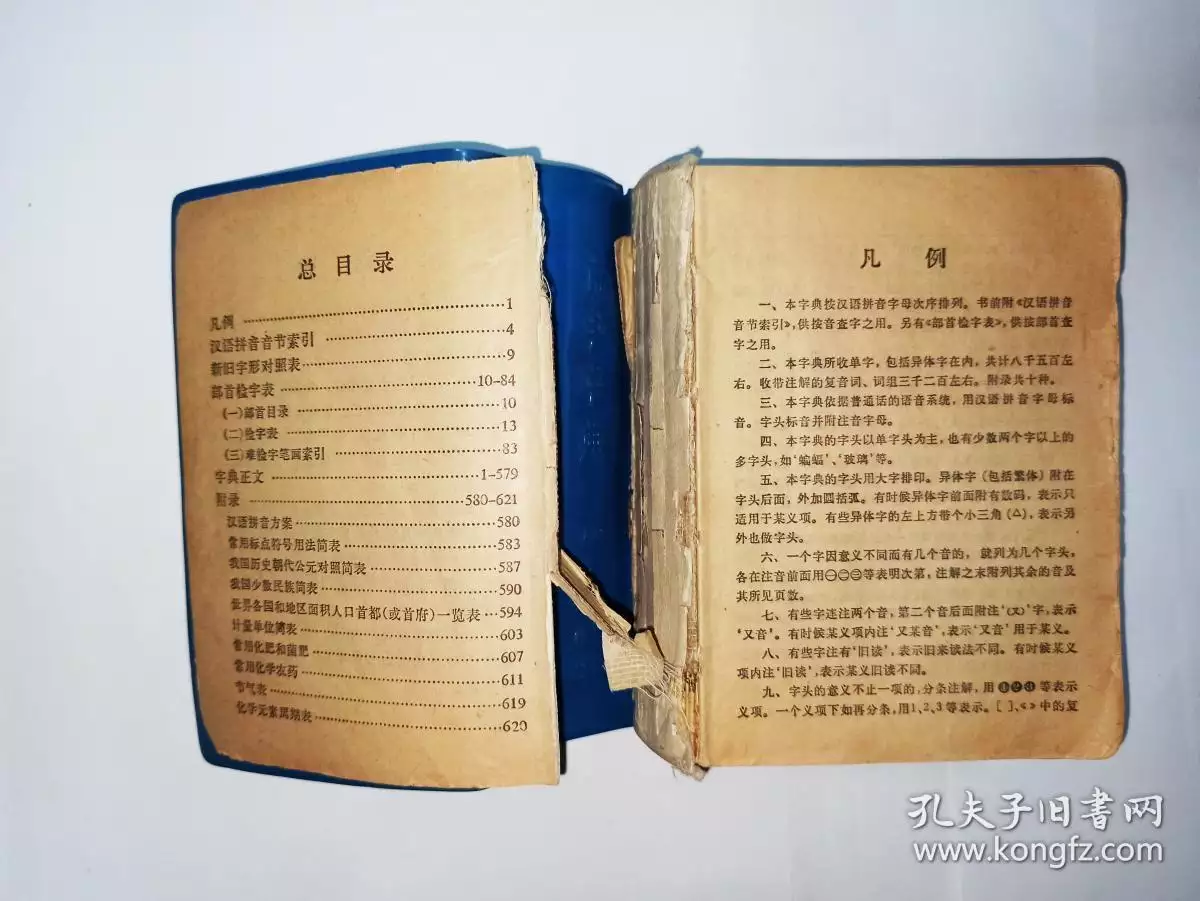 总目录
凡例……1
汉语拼音音节索引……4
新旧字形对照表……9
部首检字表……10-84
(一)部首目录……10
(二)检字表……13
(三)难检字笔画索引……83
字典正文……1-579
附录……580-621
汉语拼音方案……580
常用标点符号用法简表……583
我国历史朝代公元对照简表……587
我国少数民族简表……590
世界各国和地区面积人口首都(或首府)一览表……594
计量单位简表……603
常用化肥和菌肥……607
常用化学农药……611
节气表……619
化学元素周期表……620
凡例
一、本字典按汉语拼音字母次序排列。书前附《汉语拼音
音节索引》,供按音查字之用。另有《部首检字表》,供按部首查
字之用。
二、本字典所收单字,包括异体字在内,共计八千五百左
右。收带注解的复音词、词组三千二百左右。附录共十种。
三、本字典依据普通话的语音系统,用汉语拼音字母标
音。字头标音并附注音字母。
四、本字典的字头以单字头为主,也有少数两个字以上的
多字头,如‘蝙蝠’、‘玻璃’等。
五、本字典的字头用大字排印。异体字(包括繁体)附在
字头后面,外加圆括弧。有时候异体字前面附有数码,表示只
适用于某义项。有些异体字的左上方带个小三角(△),表示另
外也做字头。
六、一个字因意义不同而有几个音的,就列为几个字头,
各在注音前面用㊀㊁㊂等表明次第,注解之末附列其余的音及
其所见页数。
七、有些字连注两个音,第二个音后面附注‘(又)’字,表示
‘又音’。有时候某义项内注‘又某音’,表示‘又音’用于某义。
八、有些字注有‘旧读’,表示旧来读法不同。有时候某义
项内注‘旧读’,表示某义旧读不同。
九、字头的意义不止一项的,分条注解,用❶❷❸等表示
义项。一个义项下如再分条,用1、2、3等表示。[ ]、《》中的复
孔夫子旧书网
www.kongfz.com